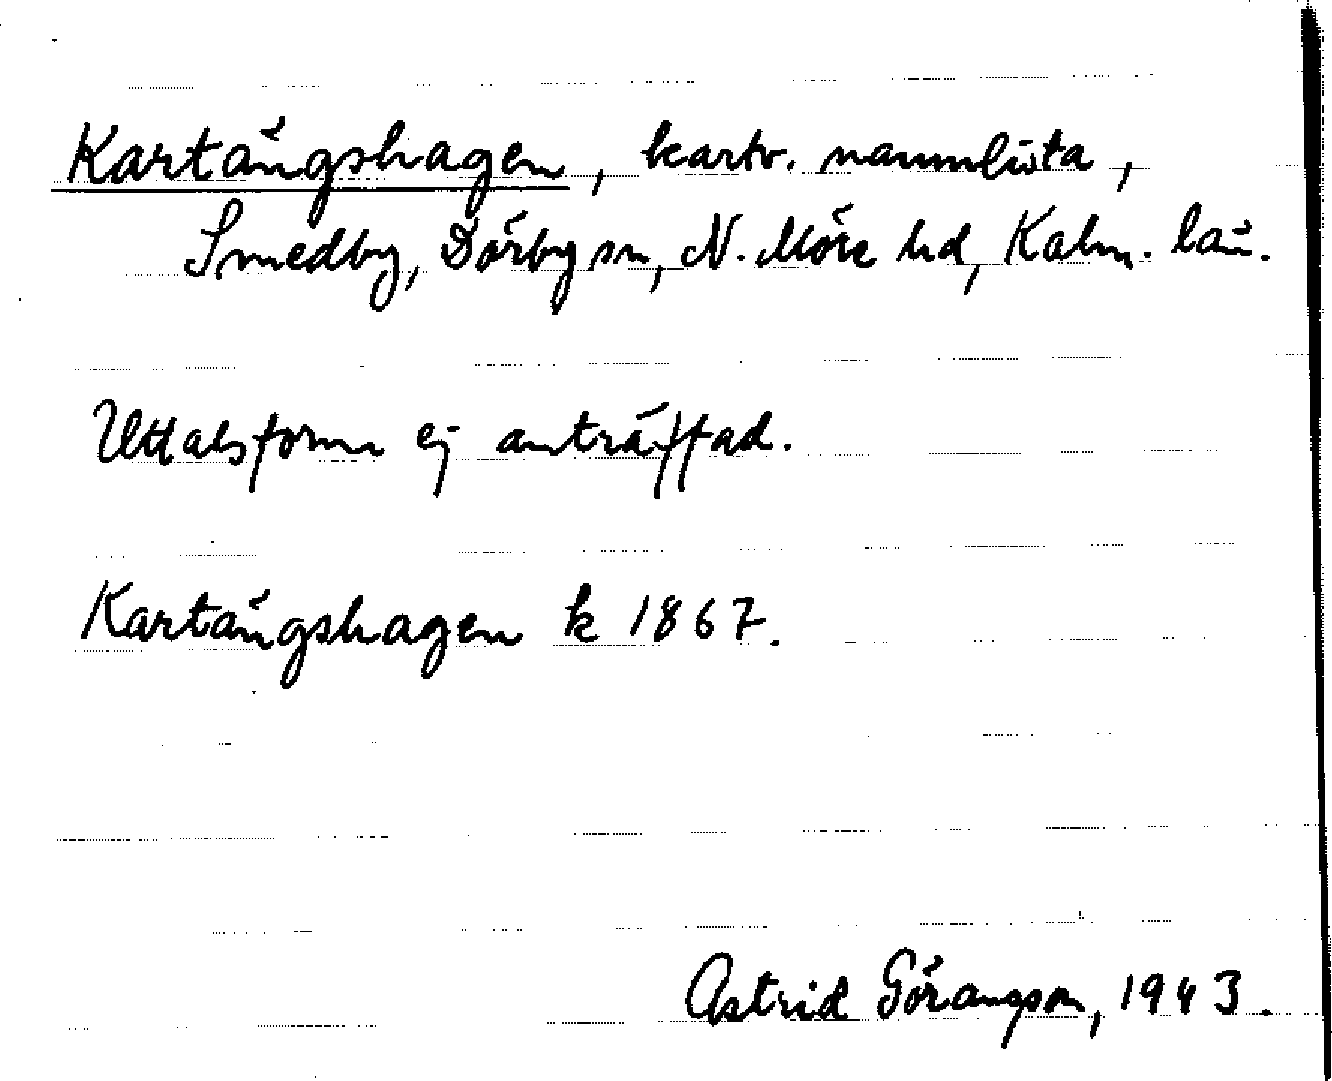 Kartängshagen, kartv. namnlista,
Smedby, Dörby sn, N. Möre hd, Kalm. län.
Uttalsform ej anträffad.
Kartängshagen k 1867.
Astrid Göransson, 1943.